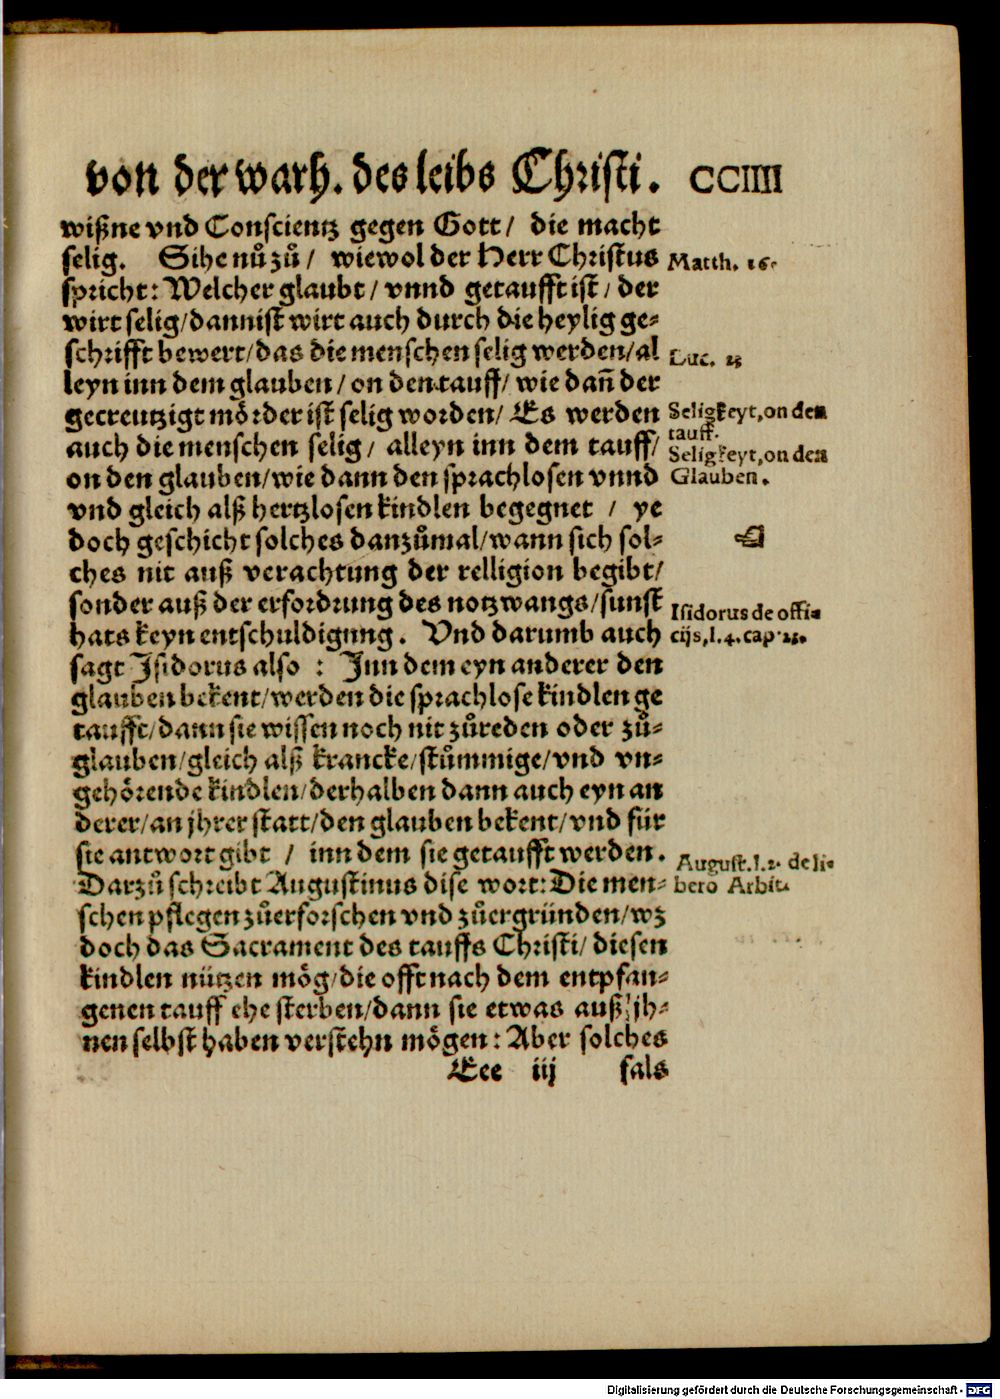 von der warh. des leibs Christi. CCIIII
wißne vnd Conscientz gegen Gott/ die macht
selig. Sihe nůzů/ wiewol der Herr Christus
Matth. 16.
spricht: Welcher glaubt/ vnnd getaufft ist/ der
wirt selig/dannist wirt auch durch die heylig ge-
schrifft bewert/das die menschen selig werden/al
Luc. 23
leyn inn dem glauben/ on den tauff/ wie dañ der
gecreutzigt mörder ist selig worden/ Es werden
Seligkeyt,on den
tauff.
auch die menschen selig/ alleyn inn dem tauff/
Seligkeyt,on den
Glauben.
on den glauben/wie dann den sprachlosen vnnd
vnd gleich alß hertzlosen kindlen begegnet / ye
doch geschicht solches danzůmal/wann sich sol-
ches nit auß verachtung der relligion begibt/
sonder auß der erfordrung des notzwangs/sunst
Isidorus de offi-
cijs,l.4.cap.
hats keyn entschuldigung. Vnd darumb auch
sagt Isidorus also : Inn dem eyn anderer den
glauben bekent/werden die sprachlose kindlen ge
taufft/dann sie wissen noch nit zůreden oder zů-
glauben/gleich alß krancke/stůmmige/vnd vn-
gehörende kindlen/derhalben dann auch eyn an
derer/an jhrer statt/den glauben bekent/vnd für
sie antwort gibt / inn dem sie getaufft werden.
August.l.2. de li-
bero Arbit.
Darzů schreibt Augustinus dise wort: Die men-
schen pflegen zůerforschen vnd zůergründen/wz
doch das Sacrament des tauffs Christi/ diesen
kindlen nützen mög/die offt nach dem entpfan-
genen tauff ehe sterben/dann sie etwas auß jh-
nen selbst haben verstehn mögen: Aber solches
Eee iij fals
Digitalisierung gefördert durch die Deutsche Forschungsgemeinschaft - DFG